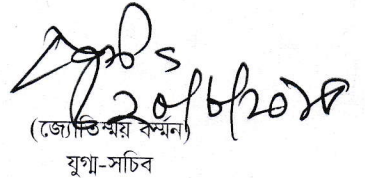 ২০/৮/২০১৮
(জ্যোতিষ্ময় বর্ম্মন)
যুগ্ম-সচিব